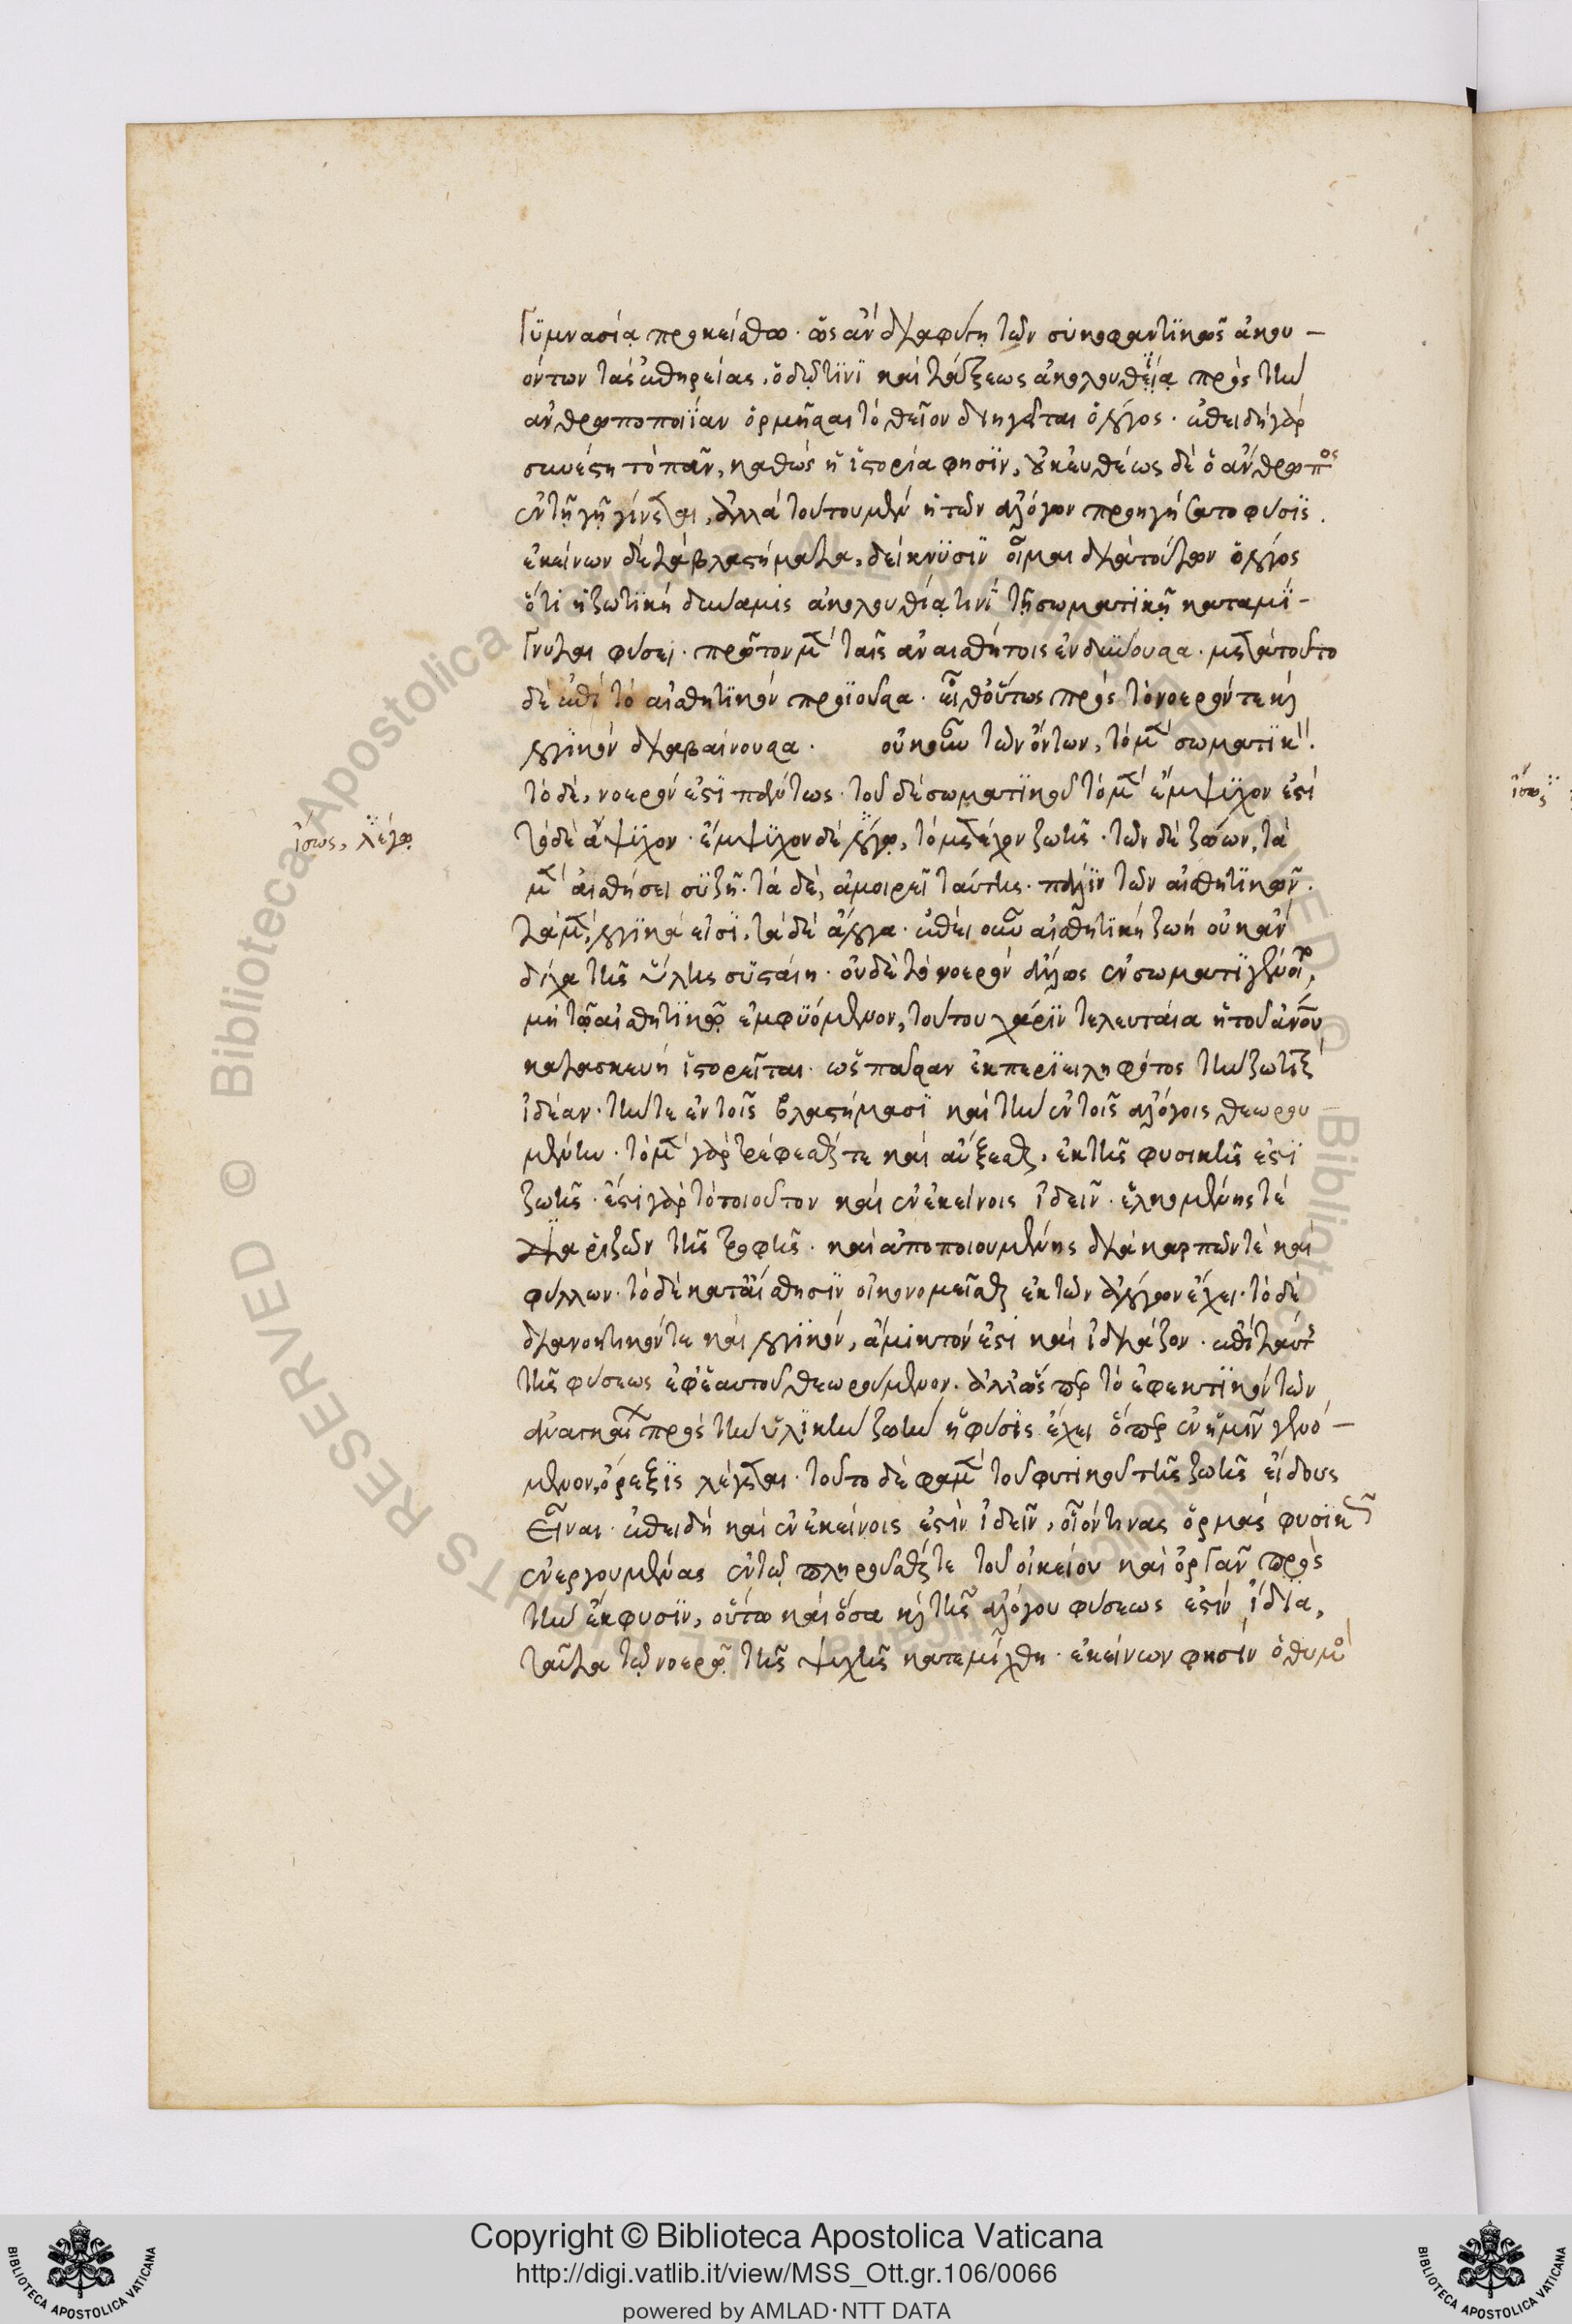 γϋμνασία προκείσθω · ὡς ἂν διαφύγη τῶν συκοφαντϊκῶς ἀκου –
όντων τὰς ἐπηρείας, ὁδῷ τϊνϊ καὶ τάξεως ἀκολουθεία πρὸς τὴν
ἀνθρωποποιΐαν ὁρμῆσαι τὸ θεῖον διηγεῖται ὁ λόγος · ἐπειδὴ γὰρ
συνέστη τὸ πᾶν, καθὼς ἡ ἱστορία φησϊν, οὐκ εὐθέως δὲ ὁ ἄνθρωπος
ἐν τῇ γῇ γίνεται, ἀλλὰ τούτου μὲν ἡ τῶν ἀλόγων προηγήσατο φύσϊς .
ἐκείνων δὲ τὰ βλαστήματα, δείκνϋσϊν οἶμαι διὰ τούτων ὁ λόγος
ὅτι ἡ ζωτϊκὴ δύναμις ἀκολουθίᾳ τινὶ τῇ σωματϊκῇ καταμϊ –
γνυται φύσει · πρῶτον μὲν ταῖς ἀναισθήτοις ἐνδύνουσα · μετὰ τοῦτο
δὲ ἐπὶ τὸ αἰσθητϊκὸν προϊοῦσα · εἶθ' οὕτως πρὸς τὸ νοερόν τε καὶ
λογϊκὸν διαβαίνουσα · οὐκοῦν τῶν ὄντων, τὸ μὲν σωματϊκὸν .
τὸ δὲ, νοερόν ἐστϊ πάντως · τοῦ δὲ σωματϊκοῦ τὸ μὲν ἔμψϋχον ἐστὶ
τὸ δὲ ἄψϋχον · ἔμψϋχον δὲ λόγῳ, τὸ μετέχον ζωῆς · τῶν δὲ ζώων, τὰ
μὲν αἰσθήσει σϋζῇ · τὰ δὲ, ἀμοιρεῖ ταύτης · πάλϊν τῶν αἰσθητϊκῶν .
τὰ μὲν, λογϊκά εἰσϊ, τὰ δὲ ἄλογα · ἐπεὶ οὖν αἰσθητϊκὴ ζωὴ οὐκ ἂν
δίχα τῆς ὕλης σϋσταίη · οὐδὲ τὸ νοερὸν ἄλλως ἐν σώματϊ γένοιτο,
μὴ τῷ αἰσθητϊκῷ ἐμφϋόμενον, τούτου χάρϊν τελευταία ἡ τοῦ ἀνου
κατασκευὴ ἱστορεῖται · ὡς πᾶσαν ἐκπερϊειληφότος τὴν ζωτικὴν
ἰδέαν · τήν τε ἐν τοῖς βλαστήμασϊ καὶ τὴν ἐν τοῖς ἀλόγοις θεωρου –
μένην · τὸ μὲν γὰρ τρέφεσθαί τε καὶ αὔξεσθαι, ἐκ τῆς φυσικῆς ἐστϊ
ζωῆς · ἔστι γὰρ τὸ τοιοῦτον καὶ ἐν ἐκείνοις ἰδεῖν · ἑλκομένης τὲ
διὰ ῥιζῶν τῆς τροφῆς · καὶ ἀποποιουμένης διὰ καρπῶν τὲ καὶ
φύλλων · τὸ δὲ κατ' αἴσθησϊν οἰκονομεῖσθαι ἐκ τῶν ἀλόγων ἔχει · τὸ δὲ
διανοητικόν τε καὶ λογϊκὸν, ἄμικτόν ἐστὶ καὶ ἰδιάζον · ἐπὶ ταύτης
τῆς φύσεως ἐφ' ἑαυτοῦ θεωρούμενον · ἀλλ' ὥσπερ τὸ ἐφεκτϊκὸν τῶν
ἀναγκαίων πρὸς τὴν ὑλϊκὴν ζωὴν ἡ φύσϊς ἔχει ὅπερ ἐν ἡμῖν γενό –
μενον, ὄρεξϊς λέγεται · τοῦτο δὲ φαμὲν τοῦ φυτικοῦ τῆς ζωῆς εἴδους
εἶναι · ἐπειδὴ καὶ ἐν ἐκείνοις ἐστὶν ἰδεῖν, οἷόν τινας ὁρμὰς φυσϊκῶς
ἐνεργουμένας ἐν τῷ πληροῦσθαί τε τοῦ οἰκείου καὶ ὀργᾶν πρὸς
τὴν ἔκφυσϊν, οὕτω καὶ ὅσα καὶ τῆς ἀλόγου φύσεως ἐστὶν ἴδϊα,
ταῦτα τῷ νοερῷ τῆς ψυχῆς κατεμίχθη · ἐκείνων φησὶν ὁ θυμὸς
ἴσως, λέγῳ
ἴσως
Copyright © Biblioteca Apostolica Vaticana
http://digi.vatlib.it/view/MSS_Ott.gr.106/0066
powered by AMLAD·NTT DATA